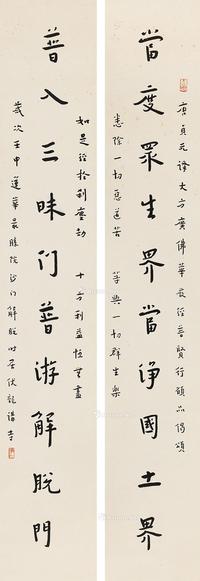 唐貞元譯大方廣佛華嚴經普賢行願品偈頌
當度眾生界當淨國土界
悉除一切惡道苦 等與一切群生樂
如是經於剎塵劫 十方利益恆無盡
普入三昧门普游解脫門
歲次壬申蓮華最勝院沙门解脫時居伏龍講寺